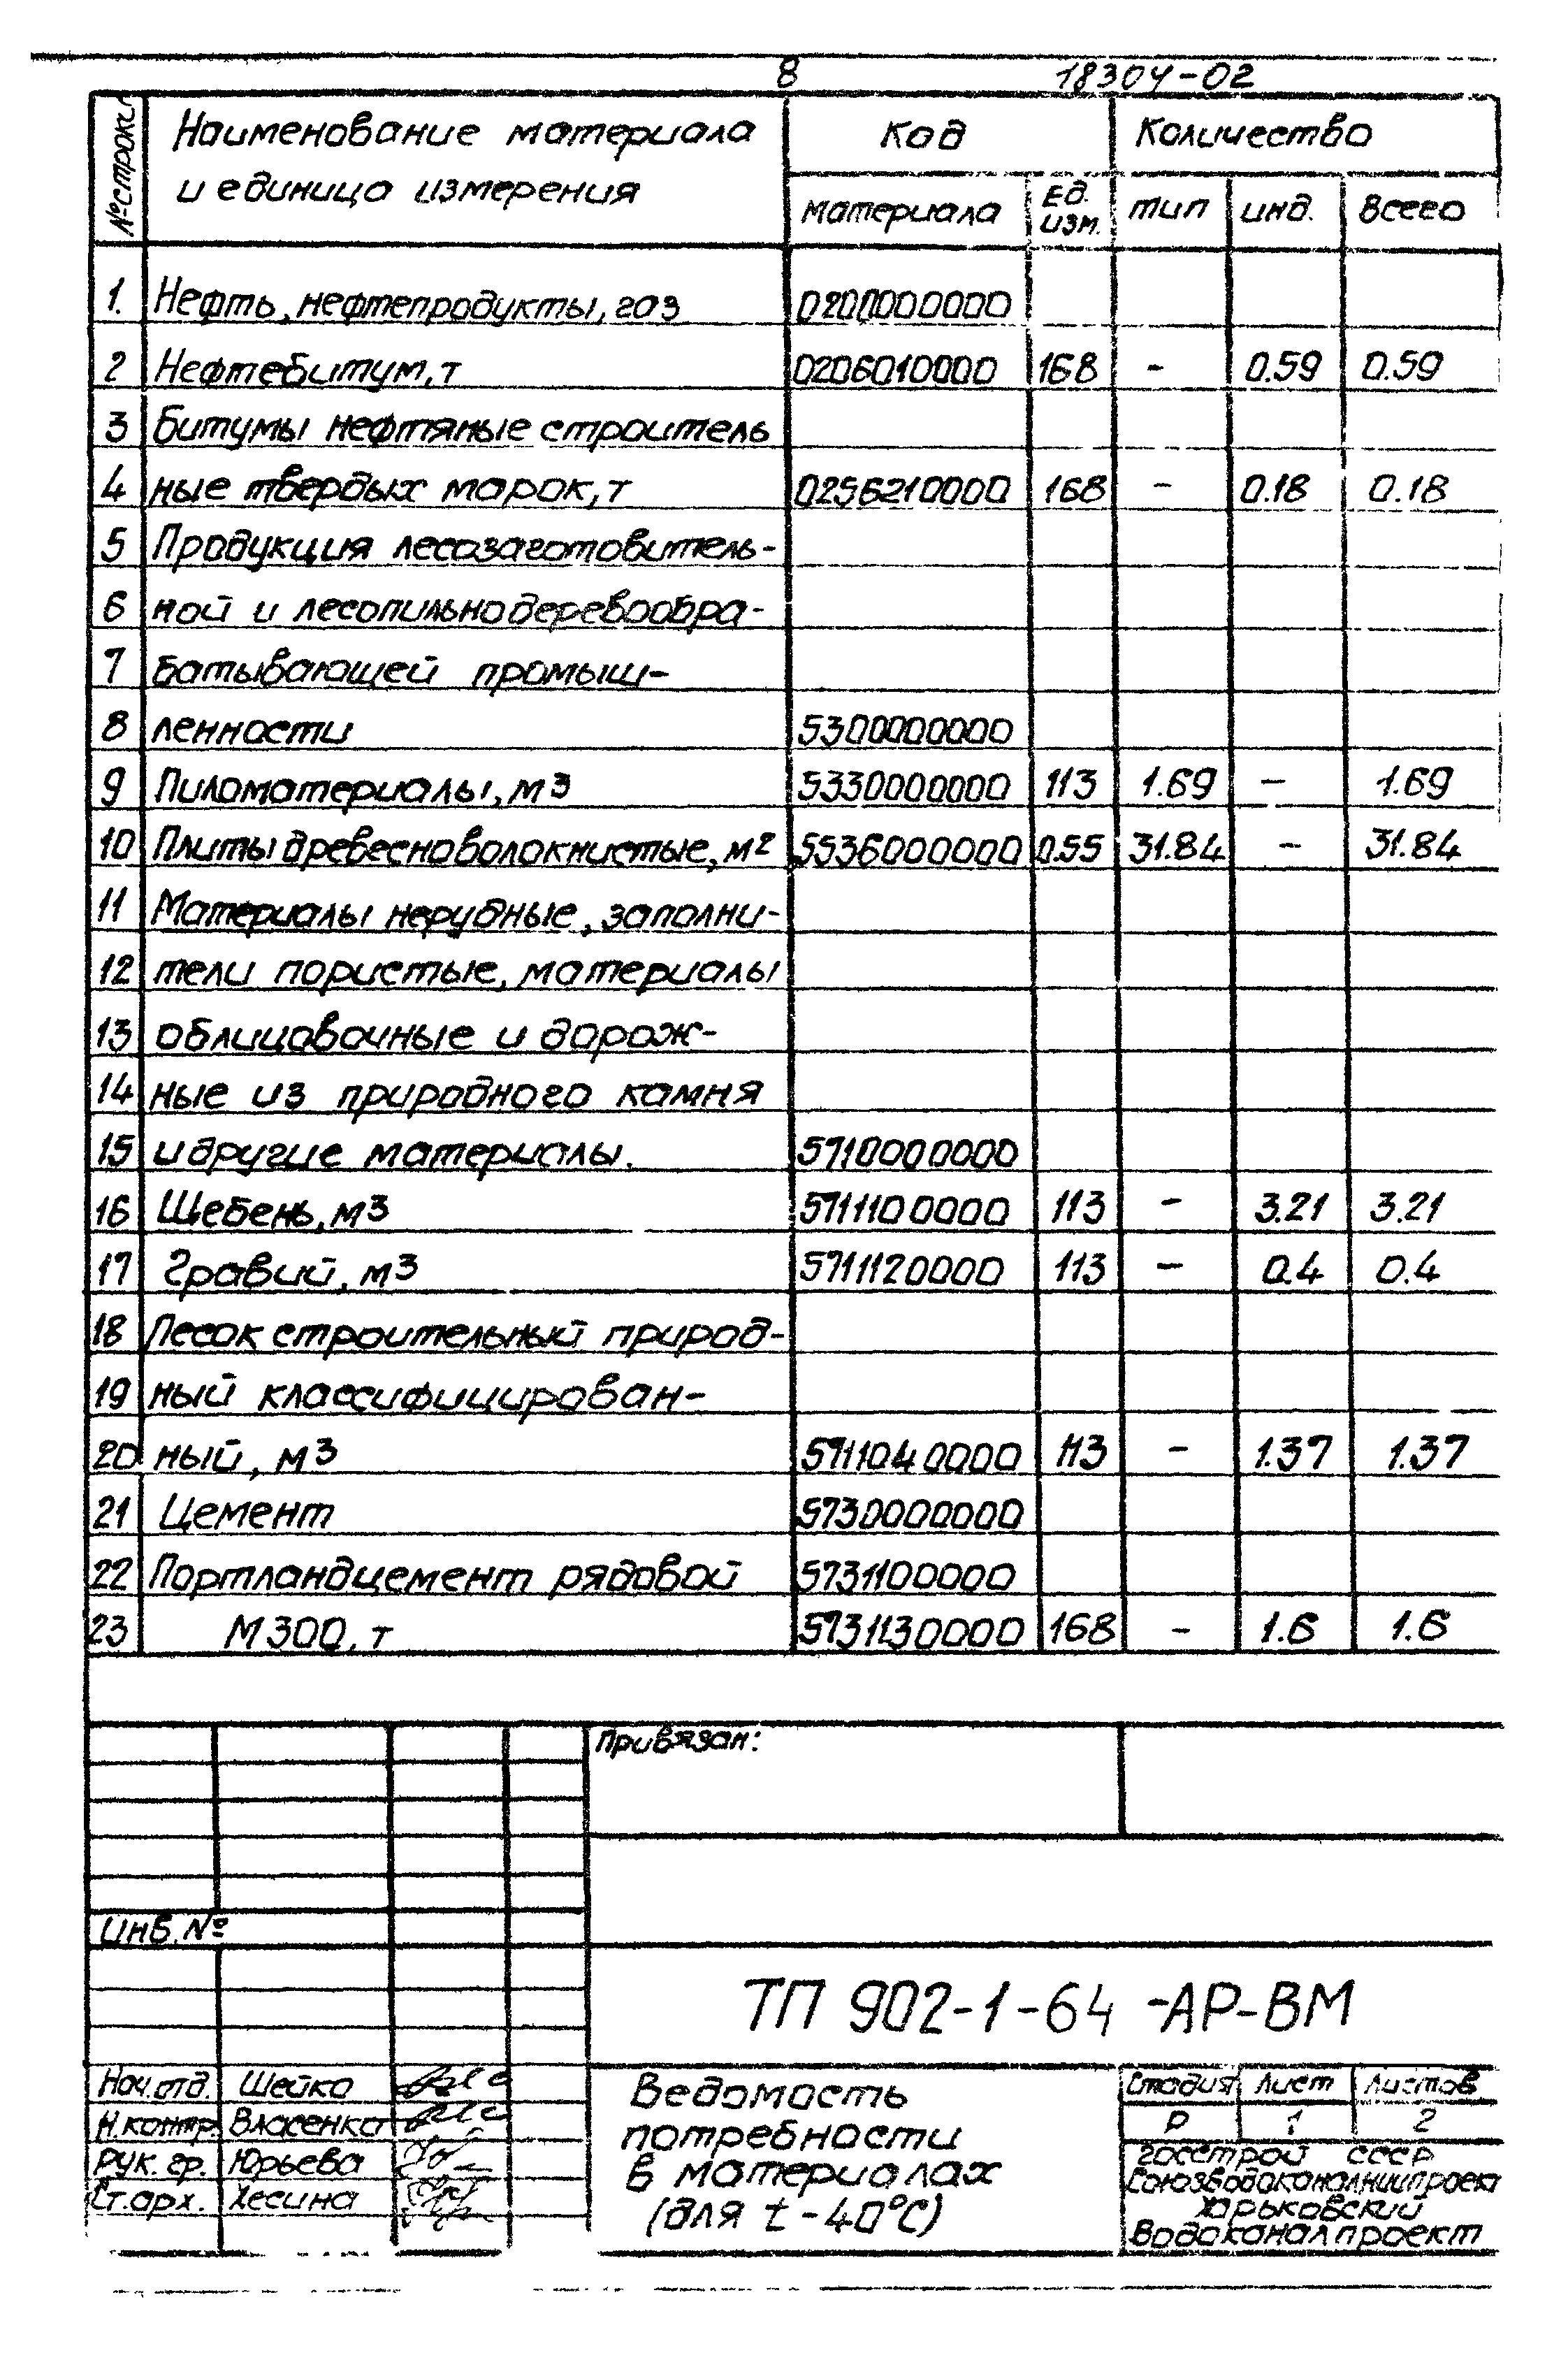 8 18304-02
№ строки Наименование материала и единица измерения Код Количество
материала Ед. изм. тип инд. всего
1. Нефть, нефтепродукты, газ 0200000000
2 Нефтебитум, т 0206010000 168 - 0.59 0.59
3 Битумы нефтяные строитель
4 ные твердых марок, т 0256210000 168 - 0.18 0.18
5 Продукция лесозаготовитель-
6 ной и лесопильнодеревообра-
7 батывающей промыш-
8 ленности 5300000000
9 Пиломатериалы, м3 5330000000 113 1.69 - 1.69
10 Плиты древесноволокнистые, м2 5536000000 0.55 31.84 - 31.84
11 Материалы нерудные, заполни-
12 тели пористые, материалы
13 облицовочные и дорож-
14 ные из природного камня
15 и другие материалы. 5710000000
16 Щебень, м3 5711100000 113 - 3.21 3.21
17 Гравий, м3 5711120000 113 - 0.4 0.4
18 Песок строительный природ-
19 ный классифицирован-
20 ный, м3 5711040000 113 - 1.37 1.37
21 Цемент 5730000000
22 Портландцемент рядовой 5731100000
23 М300, т 5731130000 168 - 1.6 1.6
Привязан:
Инв. №
ТП 902-1-64-АР-ВМ
Нач. отд. Шейко
Н. контр. Власенко
Рук. гр. Юрьева
Ст. арх. Хесина
Ведомость
потребности
в материалах
(для t -40°С)
Стадия Лист Листов
Р 1 2
Госстрой СССР
Союзводоканалниипроект
Харьковский
Водоканалпроект